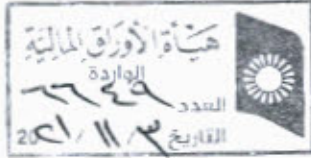 هيأة الأوراق المالية
الواردة
العدد ٦٦٤٩
التاريخ ٣ / ١١ / ٢٠٢١